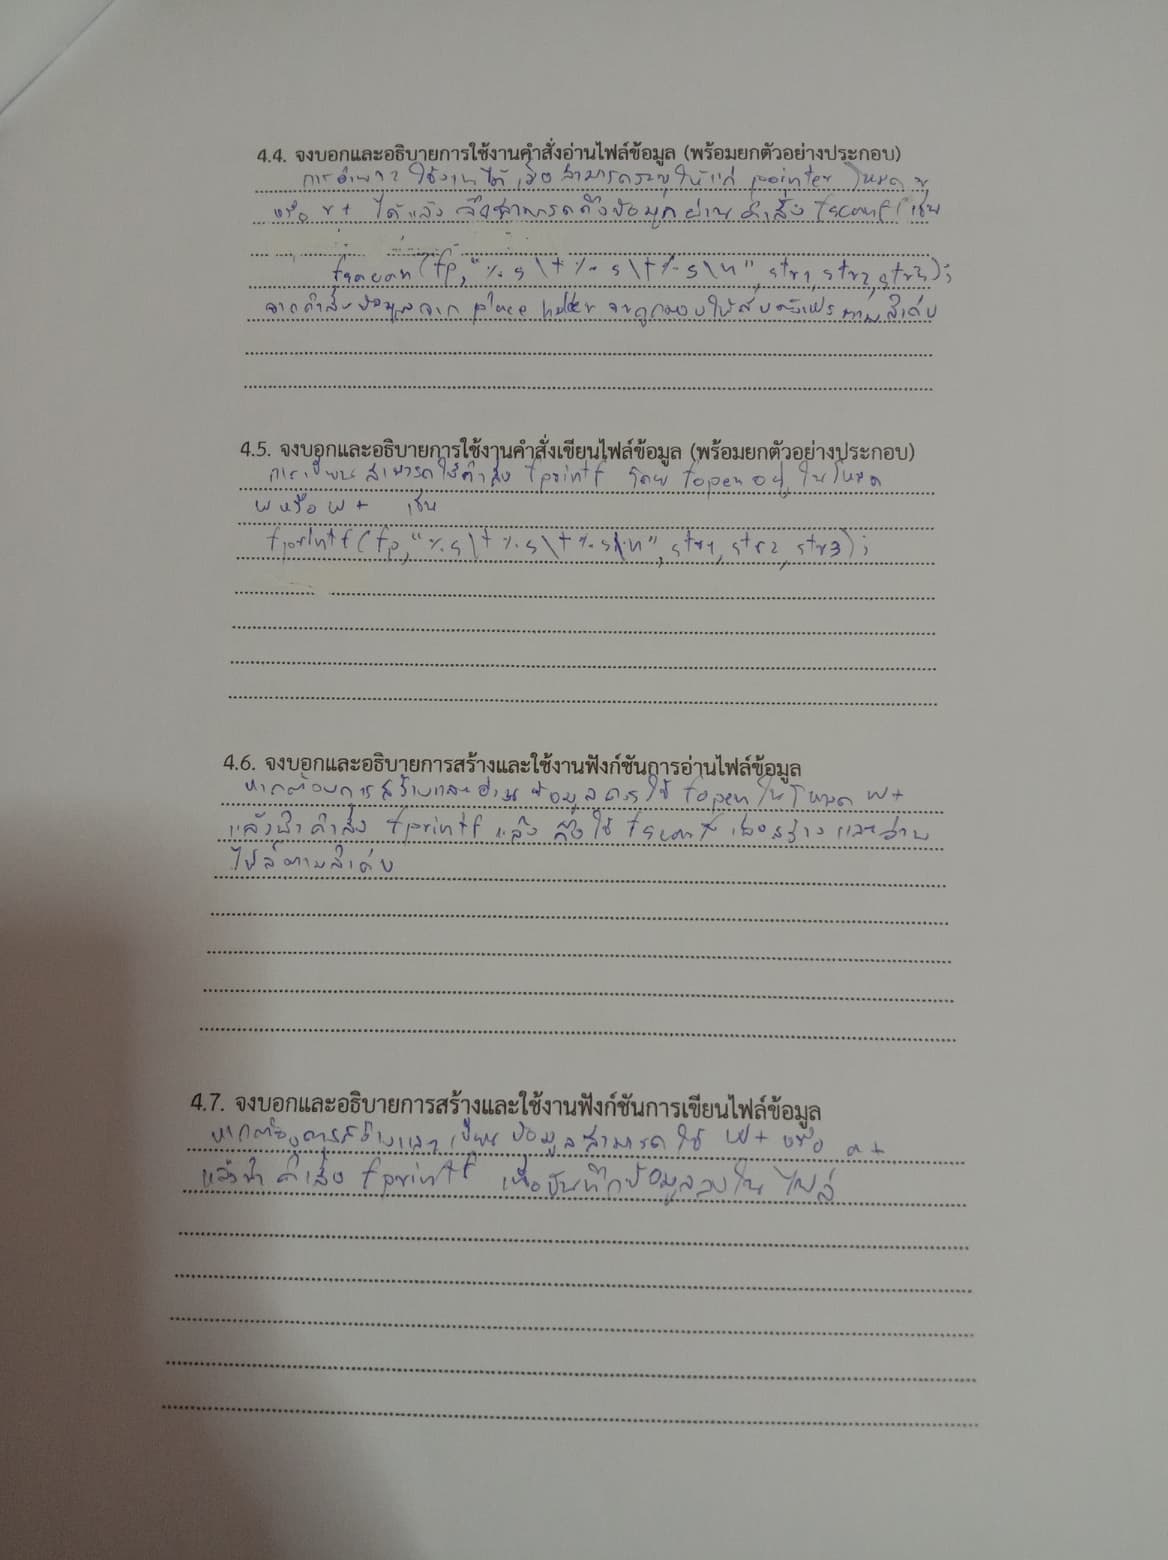 4.4. จงบอกและอธิบายการใช้งานคำสั่งอ่านไฟล์ข้อมูล (พร้อมยกตัวอย่างประกอบ)
ใช้งานได้ เมื่อ สามารถระบุให้แก่ pointer โหมด r
หรือ r+ ได้แล้ว จึงสามารถดึงข้อมูลผ่านคำสั่ง fscanf เช่น
(fp,"%s\t%s\t%s\n", str1, str2, str3);
จากคำสั่งข้อมูลจาก place holder จะถูกมอบให้กับตัวแปรตามลำดับ
4.5. จงบอกและอธิบายการใช้งานคำสั่งเขียนไฟล์ข้อมูล (พร้อมยกตัวอย่างประกอบ)
การเขียนสามารถใช้คำสั่ง fprintf โดย fopen อยู่ในโหมด
w หรือ w+ เช่น
fprintf(fp,"%s\t%s\t%s\n", str1, str2, str3);
4.6. จงบอกและอธิบายการสร้างและใช้งานฟังก์ชันการอ่านไฟล์ข้อมูล
หากต้องการสร้างและอ่าน ข้อมูลควรใช้ fopen ในโหมด w+
แล้วนำคำสั่ง fprintf แล้วจึงใช้ fscanf เพื่อสร้างและอ่าน
ไฟล์ตามลำดับ
4.7. จงบอกและอธิบายการสร้างและใช้งานฟังก์ชันการเขียนไฟล์ข้อมูล
หากต้องการสร้างและเขียน ข้อมูลสามารถใช้ w+ หรือ a+
แล้วนำคำสั่ง fprintf เพื่อบันทึกข้อมูลลงในไฟล์